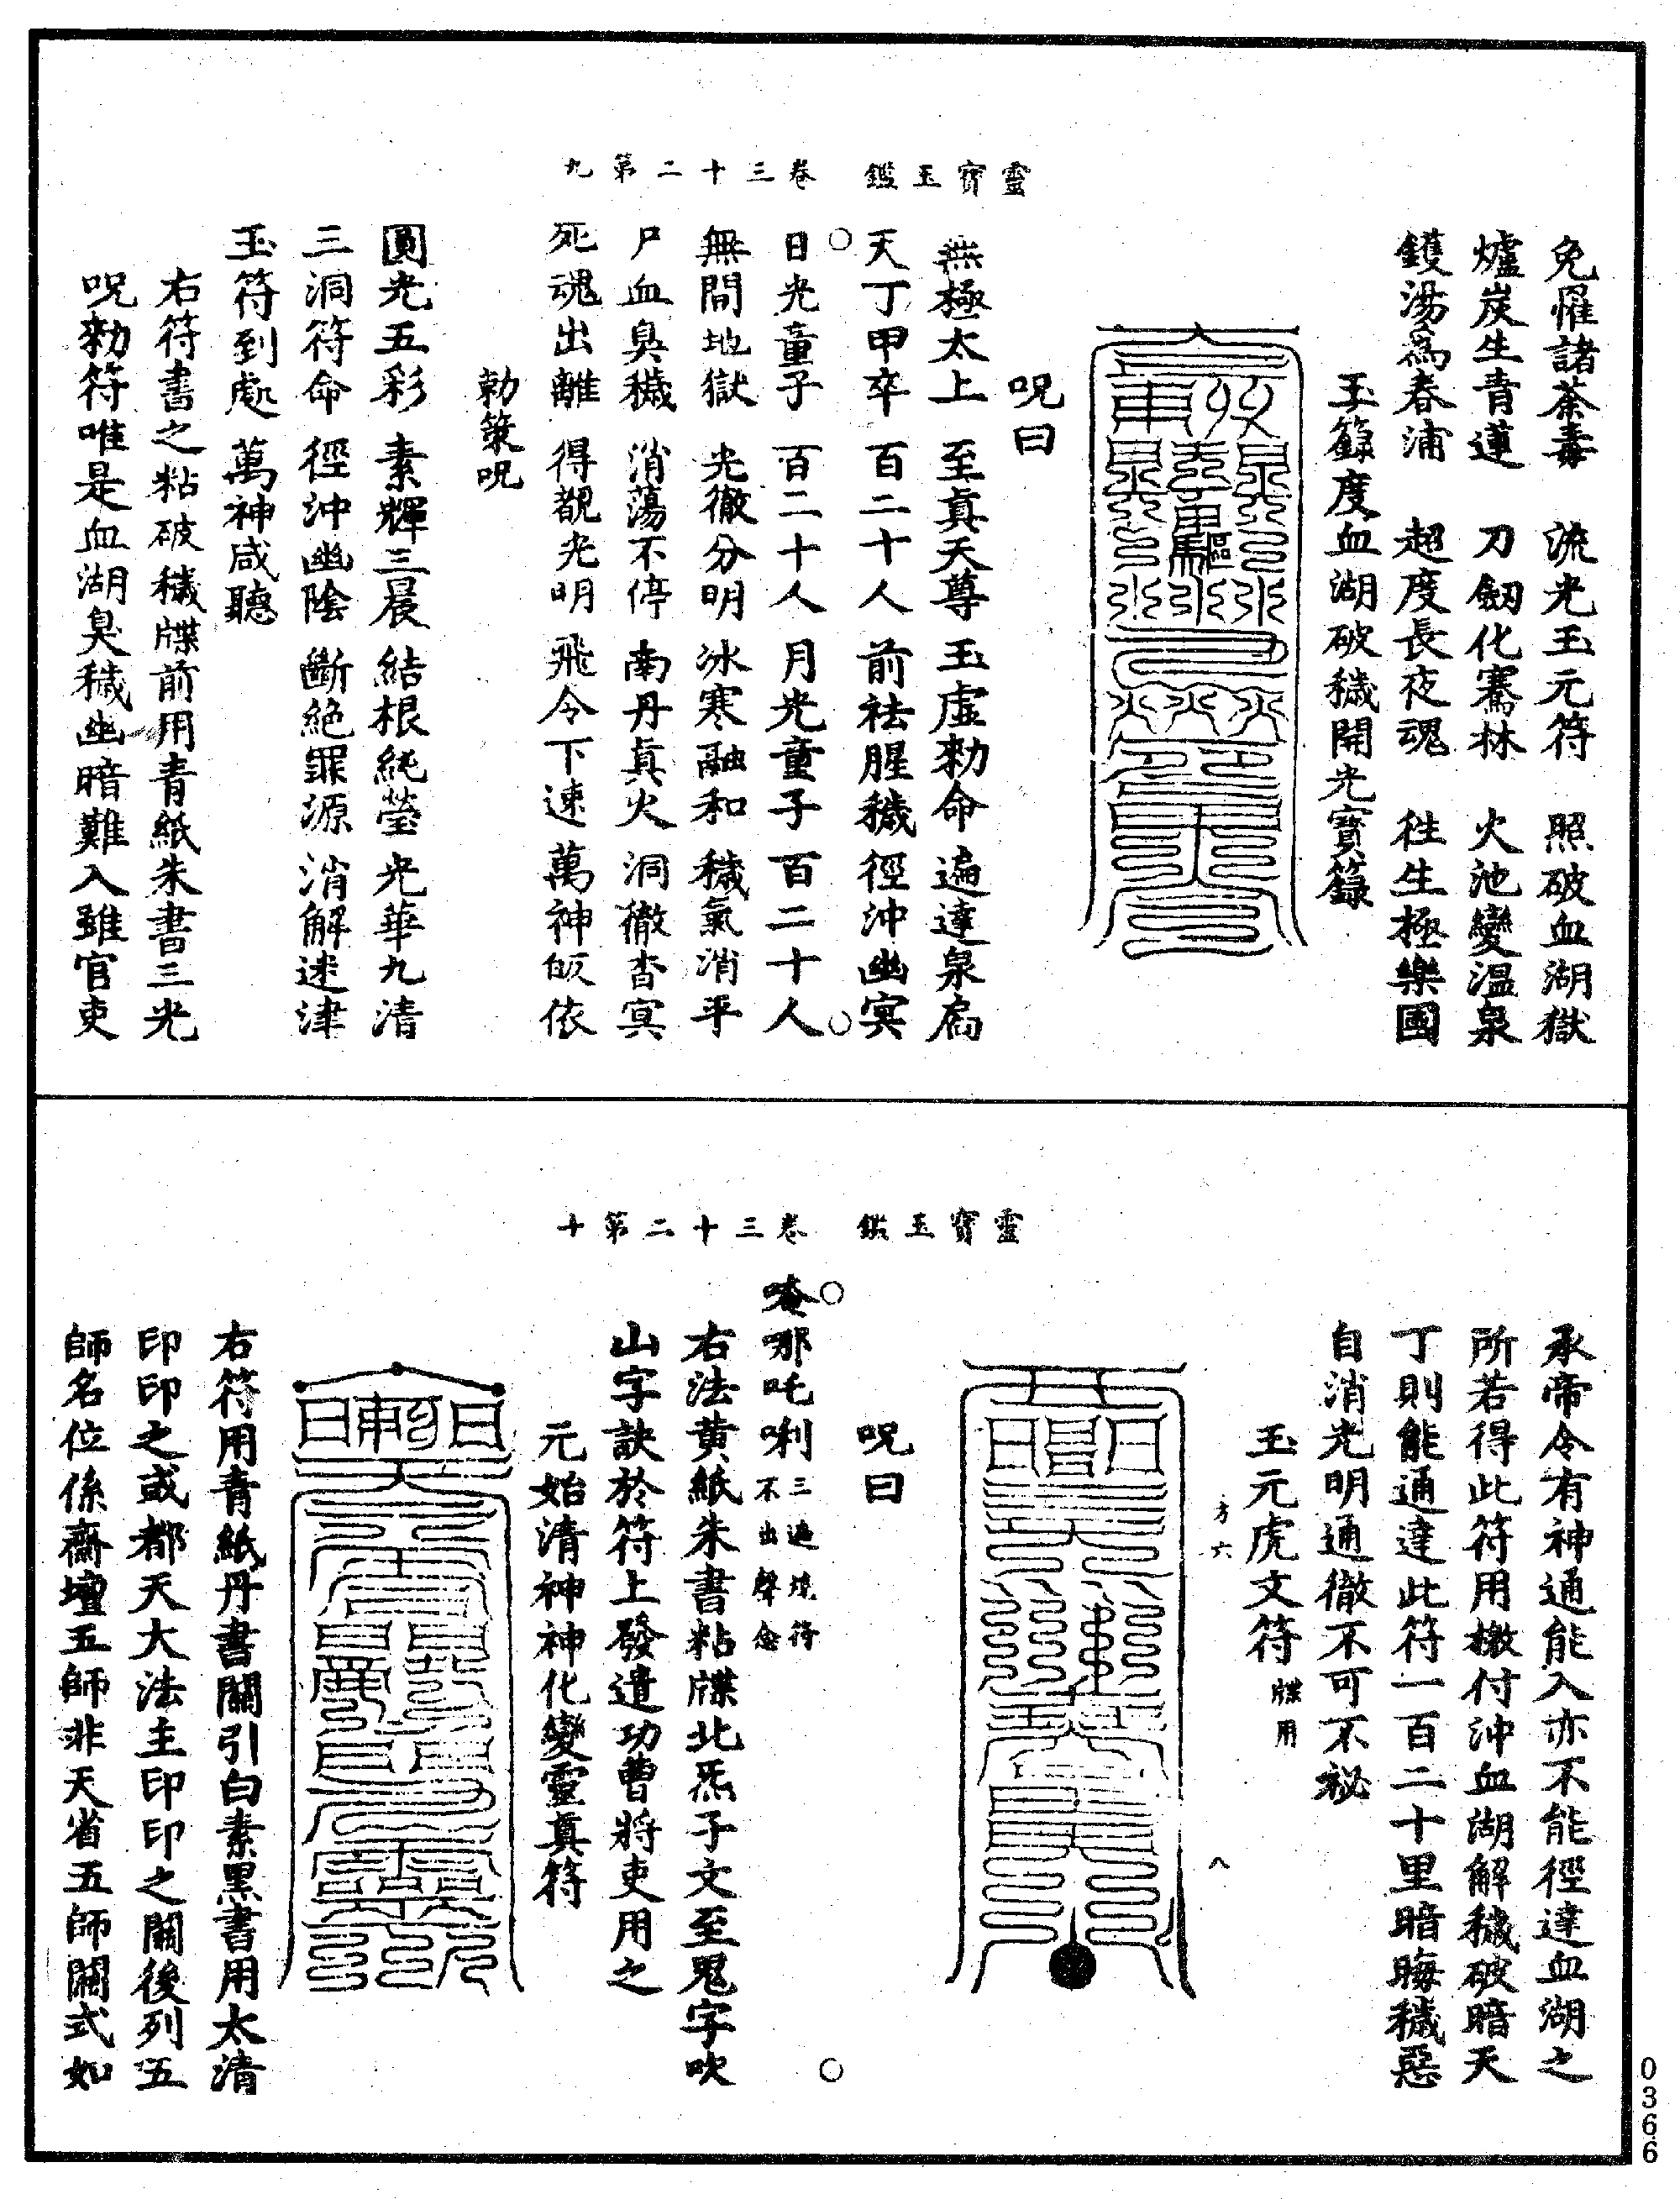 靈寶玉鑑 卷三十二第九
免罹諸荼毒 流光玉元符 照破血湖獄
爐炭生青蓮 刀劒化騫林 火池變溫泉
鑊湯為春浦 超度長夜魂 徃生極樂國
玉籙度血湖破穢開光寶籙
呪曰
無極太上 至真天尊 玉虛勑命 遍達泉扃
天丁甲卒 百二十人 前祛腥穢 徑沖幽冥
日光童子 百二十人 月光童子 百二十人
無間地獄 光徹分明 冰寒融和 穢氣消平
尸血臭穢 消蕩不停 南丹真火 洞徹杳冥
死魂出離 得覩光明 飛令下速 萬神皈依
勅策呪
圓光五彩 素輝三晨 結根純瑩 光華九清
三洞符命 徑沖幽陰 斷絕罪源 消解迷津
玉符到處 萬神咸聽
右符書之粘破穢牒前用青紙朱書三光
呪勑符唯是血湖臭穢幽暗難入雖官吏
靈寶玉鑑 卷三十二第十
承帝令有神通能入亦不能徑達血湖之
所若得此符用檄付沖血湖解穢破暗天
丁則能通達此符一百二十里暗晦穢惡
自消光明通徹不可不祕
玉元虎文符 牒用
方六 八
呪曰
唵哪吒唎 三遍燒符不出聲念
右法黃紙朱書粘牒北炁子文至鬼字吹
山字訣於符上發遣功曹將吏用之
元始清神神化變靈真符
右符用青紙丹書關引白素黑書用太清
印印之或都天大法主印印之關後列五
師名位係齋壇五師非天省五師關式如
0366